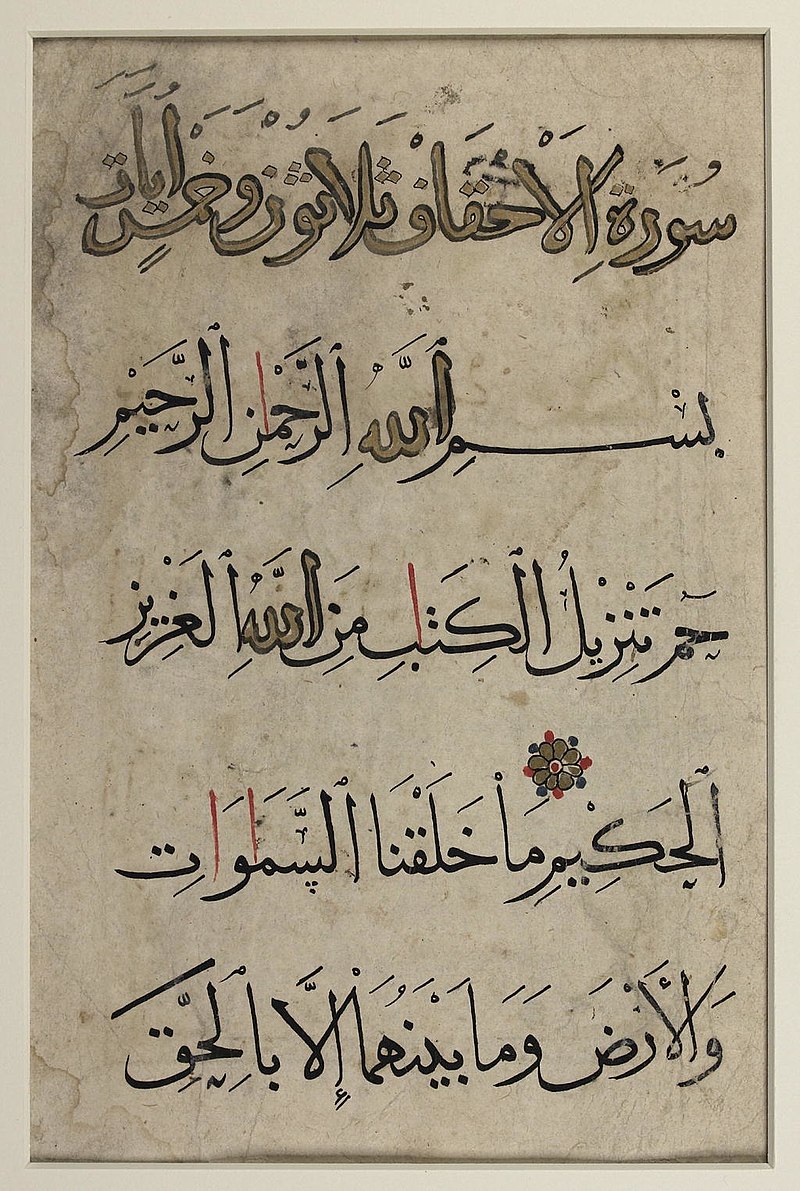 سُورَةُ الْاَحْقَافْ ثَلَاثُوْنَ وَخَمْسُ اٰيَاتٍ
بِسْمِ ٱللَّهِ ٱلرَّحْمٰنِ ٱلرَّحِيْمِ
حٓمٓ تَنْزِيْلُ ٱلْكِتٰبِ مِنَ ٱللَّهِ ٱلْعَزِيْزِ
ٱلْحَكِيْمِ مَاْ خَلَقْنَا ٱلسَّمَاوَاتِ
وَٱلْأَرْضَ وَمَا بَيْنَهُمَاْ إِلَّا بِٱلْحَقِّ